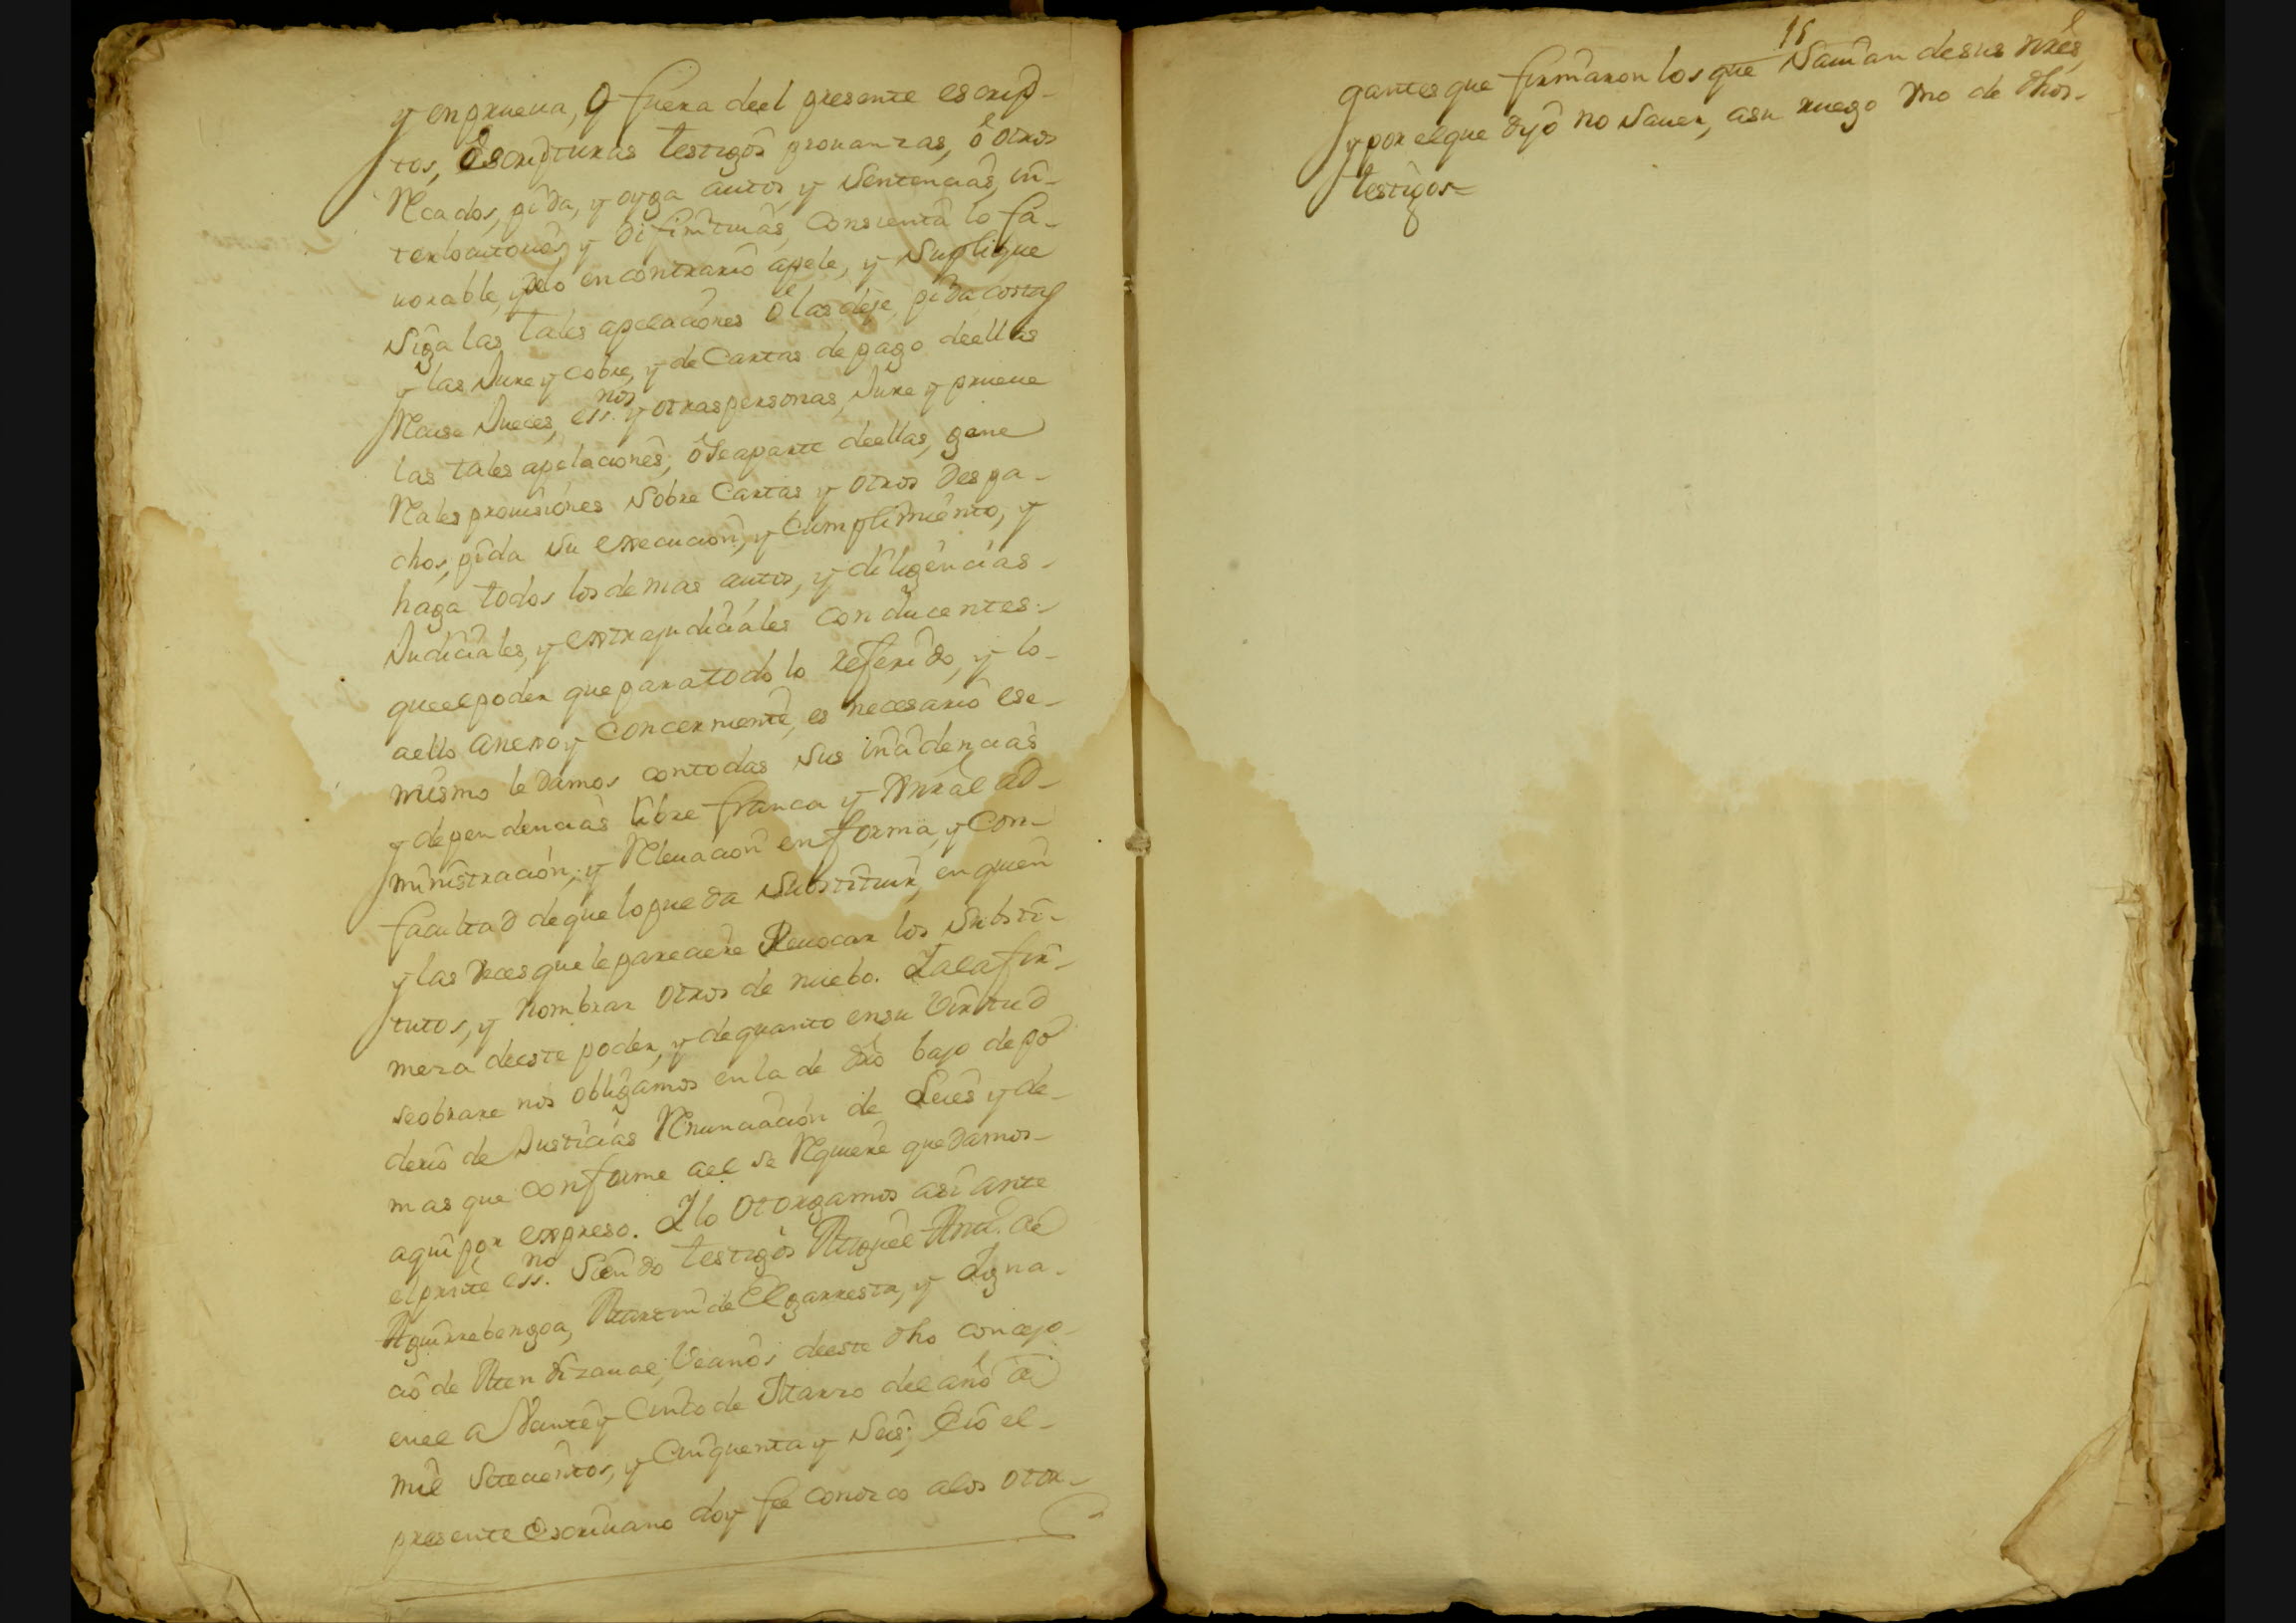 y en prueua, y fuera deel presente escrip-
tos, escripturas testigos prouanzas, ô otros
Recados, pida, y oyga autos, y Sentencias, in-
terlocutorias, y difinitiuas, consienta lo fa-
uorable, y de lo en contrario apele, y Suplique
Siga las tales apelaciones ô las deje, pida costas
y las Jure y cobre, y de Cartas de pago deellas
Recuse Jueces, ess.nos y otras personas, Jure y prueue
las tales apelaciones, ô Se aparte deellas, gane
Rales prouisiones Sobre Cartas y otros Despa-
chos, pida Su execucion, y Cumplimiento, y
haga todos los demas autos, y diligencias-
Judiciales, y extrajudiciales conducentes-
que el poder que para todo lo referido, y lo-
aello anexo y concerniente, es necesario ese-
mismo le damos contodas Sus incidencias
y dependencias libre franca y Xnral ad-
ministracion, y Releuacion en forma, y Con-
facultad de que lo pueda Substituir, en quien
y las Veces que le pareciere Reuocar los Substi-
tutos, y nombrar otros de nuebo. Y ala fir-
meza deeste poder, y de quanto en su Virtud
se obrare nos obligamos en la de dro bajo de po
derio de Justicias Renunciacion de Leies y de-
mas que conforme ael Se Requiere que damos-
aqui por expreso. Y lo otorgamos asi ante
el prnte ess.no Siendo testigos Miguel Ant.o de
Aguirrebengoa, Martin de Elgarresta, y Igna-
cio de Mendizaual, Vecinos deeste dho concejo-
enel a Veinte y Cinco de Marzo del año de
mil Setecientos, y Cinquenta y Seis; E io el-
presente Escriuano doy fee conozco alos otor-
18
gantes que firmaron los que Sauian de sus nres,
y por el que dijo no Sauer, asu ruego Vno de dhos-
testigos=